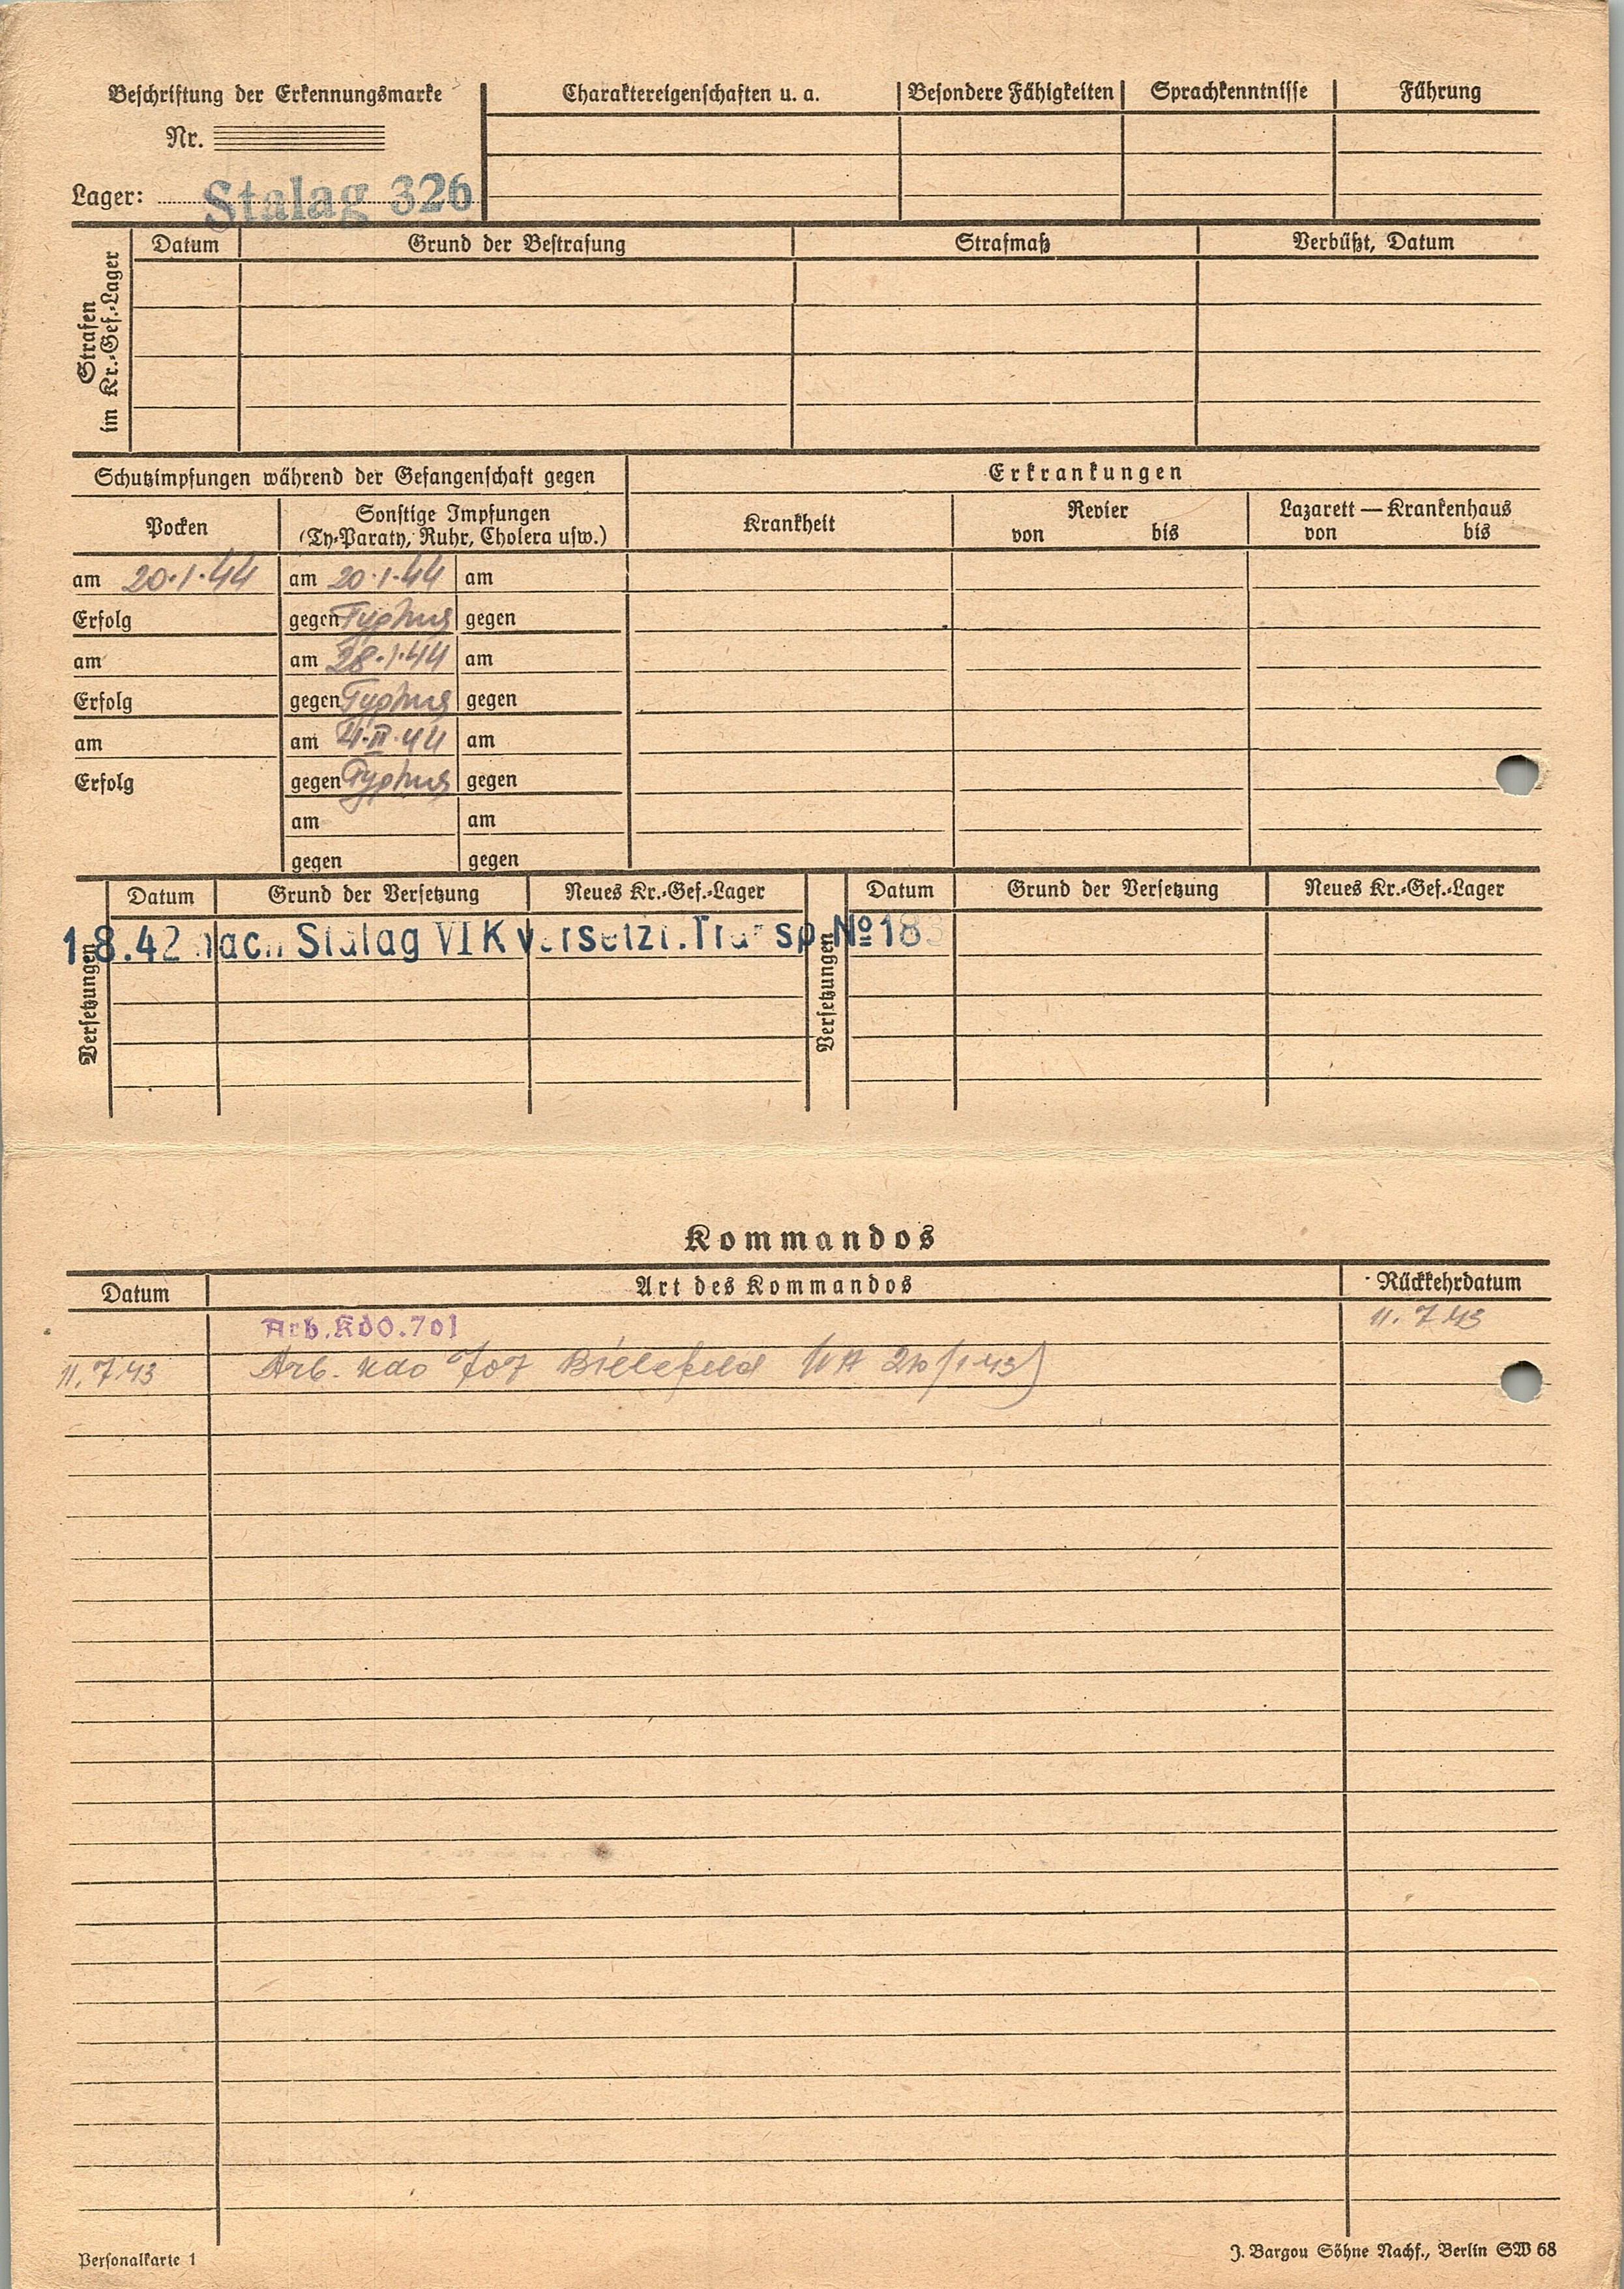 Beschriftung der Erkennungsmarke
Nr.
Lager: Stalag 326
Charaktereigenschaften u. a. Besondere Fähigkeiten Sprachkenntnisse Führung
Strafen im Kr.-Gef.-Lager
Datum Grund der Bestrafung Strafmaß Verbüßt, Datum
Schutzimpfungen während der Gefangenschaft gegen
Erkrankungen
Pocken
Sonstige Impfungen
(Ty-Paraty, Ruhr, Cholera usw.)
Krankheit
Revier
von bis
Lazarett — Krankenhaus
von bis
am 20.1.44 am 20.1.44 am
Erfolg gegen Typhus gegen
am am 28.1.44 am
Erfolg gegen Typhus gegen
am am 4.II.44 am
Erfolg gegen Typhus gegen
am am
gegen gegen
Versetzungen
Datum Grund der Versetzung Neues Kr.-Gef.-Lager
Versetzungen
Datum Grund der Versetzung Neues Kr.-Gef.-Lager
1.8.42 nach Stalag VI K versetzt. Transp. No 183
Kommandos
Datum Art des Kommandos Rückkehrdatum
Arb.Kdo.701 11.7.43
11.7.43 Arb. Kdo 707 Bielefeld
Personalkarte 1
J. Bargou Söhne Nachf., Berlin SW 68